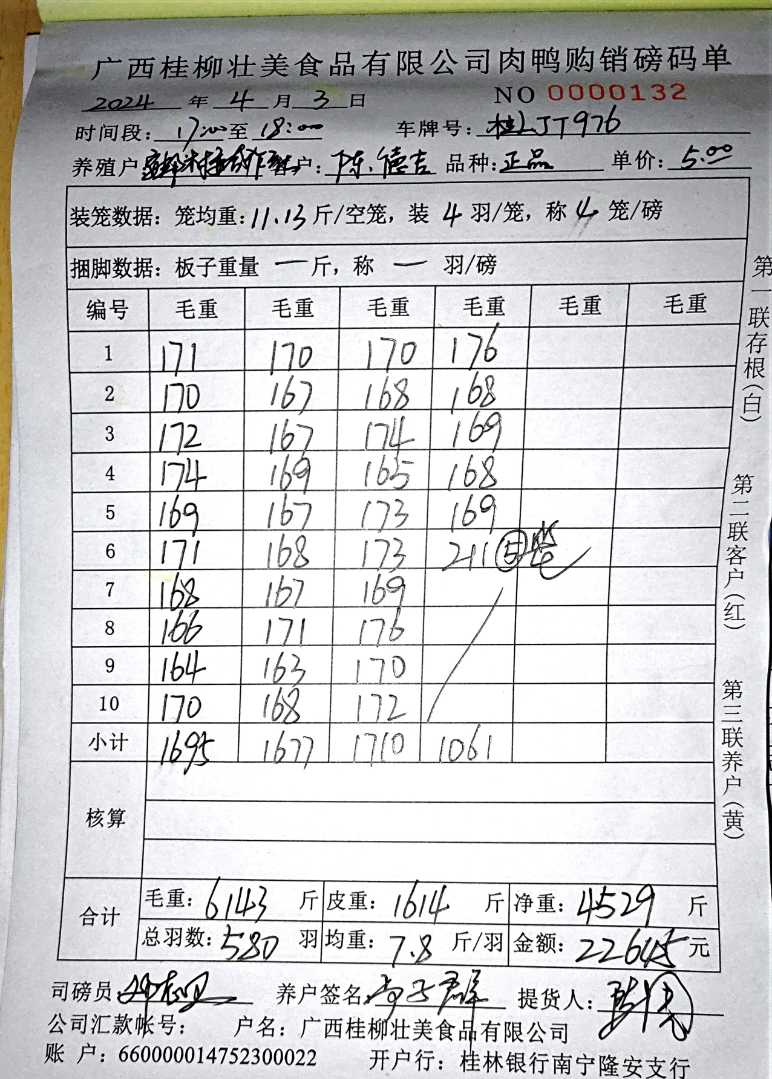 广西桂柳壮美食品有限公司肉鸭购销磅码单
2024 年 4 月 3 日 NO 0000132
时间段: 17:00 至 18:00 车牌号: 桂LJT976
养殖户: 户: 陈德吉 品种: 正品 单价: 5.00
装笼数据: 笼均重: 11.13 斤/空笼, 装 4 羽/笼, 称 4 笼/磅
捆脚数据: 板子重量 一 斤, 称 一 羽/磅
编号 毛重 毛重 毛重 毛重 毛重 毛重
1 171 170 170 176
2 170 167 168 168
3 172 167 174 169
4 174 169 165 168
5 169 167 173 169
6 171 168 173 211 ⑤笼
7 168 167 169
8 166 171 176
9 164 163 170
10 170 168 172
小计 1695 1677 1710 1061
核算
合计 毛重: 6143 斤 皮重: 1614 斤 净重: 4529 斤
总羽数: 580 羽 均重: 7.8 斤/羽 金额: 22645 元
司磅员 养户签名 提货人:
公司汇款帐号: 户名: 广西桂柳壮美食品有限公司
账 户: 660000014752300022 开户行: 桂林银行南宁隆安支行
第一联存根(白)
第二联客户(红)
第三联养户(黄)